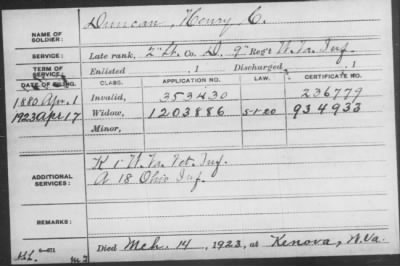 NAME OF SOLDIER: Duncan, Henry C.
SERVICE: Late rank, 2" Lt. Co. D, 9" Reg't W. Va. Inf.
TERM OF SERVICE: Enlisted , 1 Discharged , 1
DATE OF FILING. CLASS. APPLICATION NO. LAW. CERTIFICATE NO.
1880 Apr. 1 Invalid, 353430 236779
1923 Apr 17 Widow, 1203886 5-1-20 934933
Minor,
ADDITIONAL SERVICES: K 1 W. Va. Vet. Inf.
A 18 Ohio Inf.
REMARKS:
Died Mch. 14, 1923, at Kenova, W. Va.